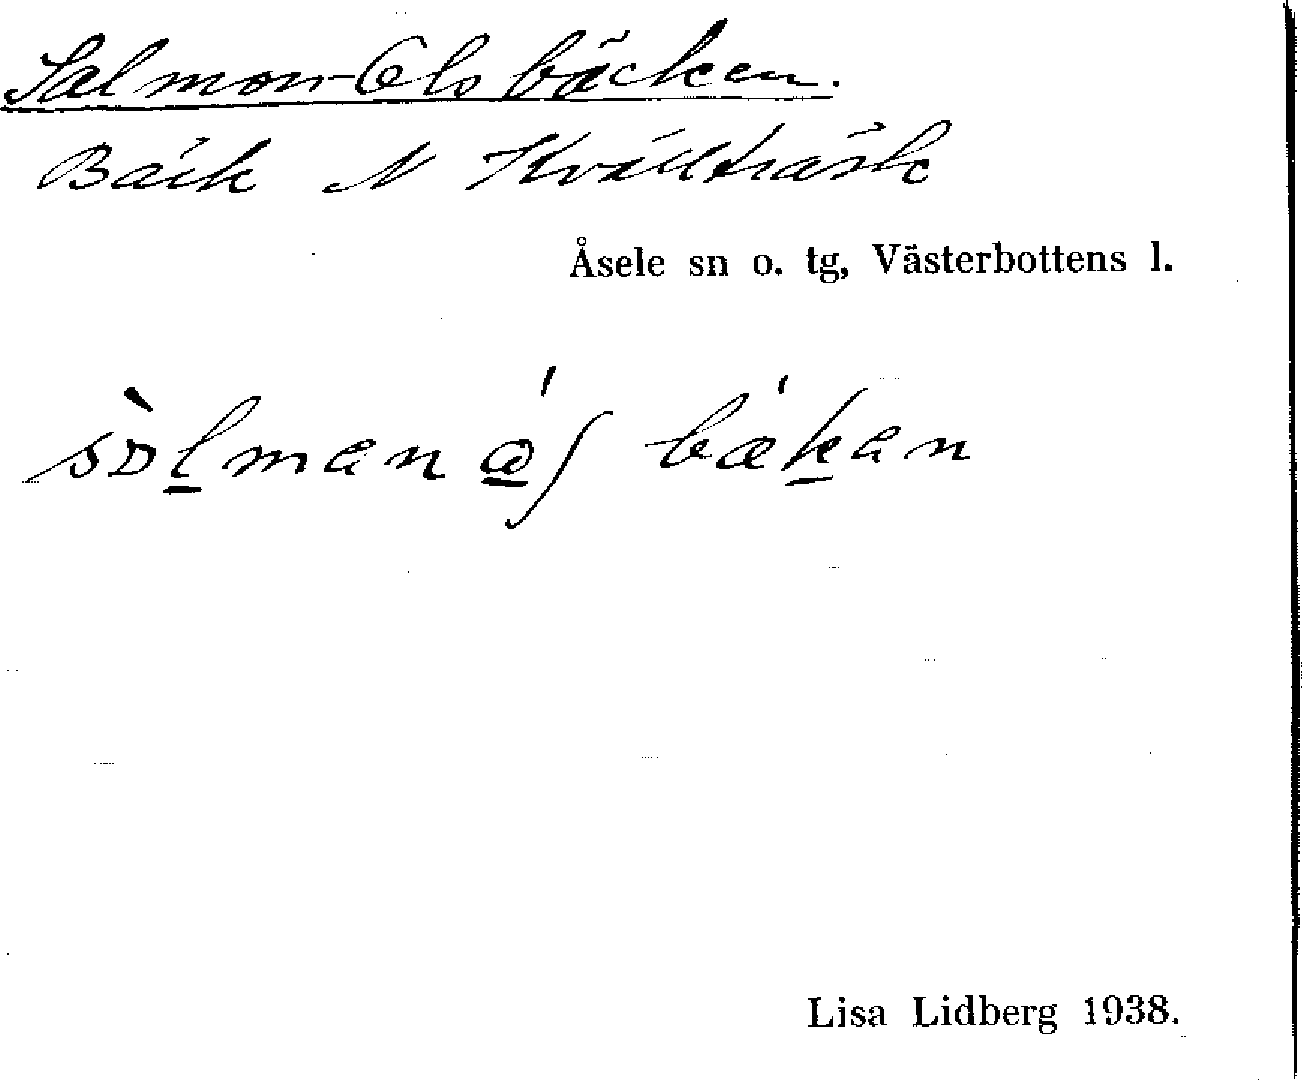 Salmon-Olsbäcken.
Bäck N Kvällträsk
Åsele sn o. tg, Västerbottens l.
Lisa Lidberg 1938.